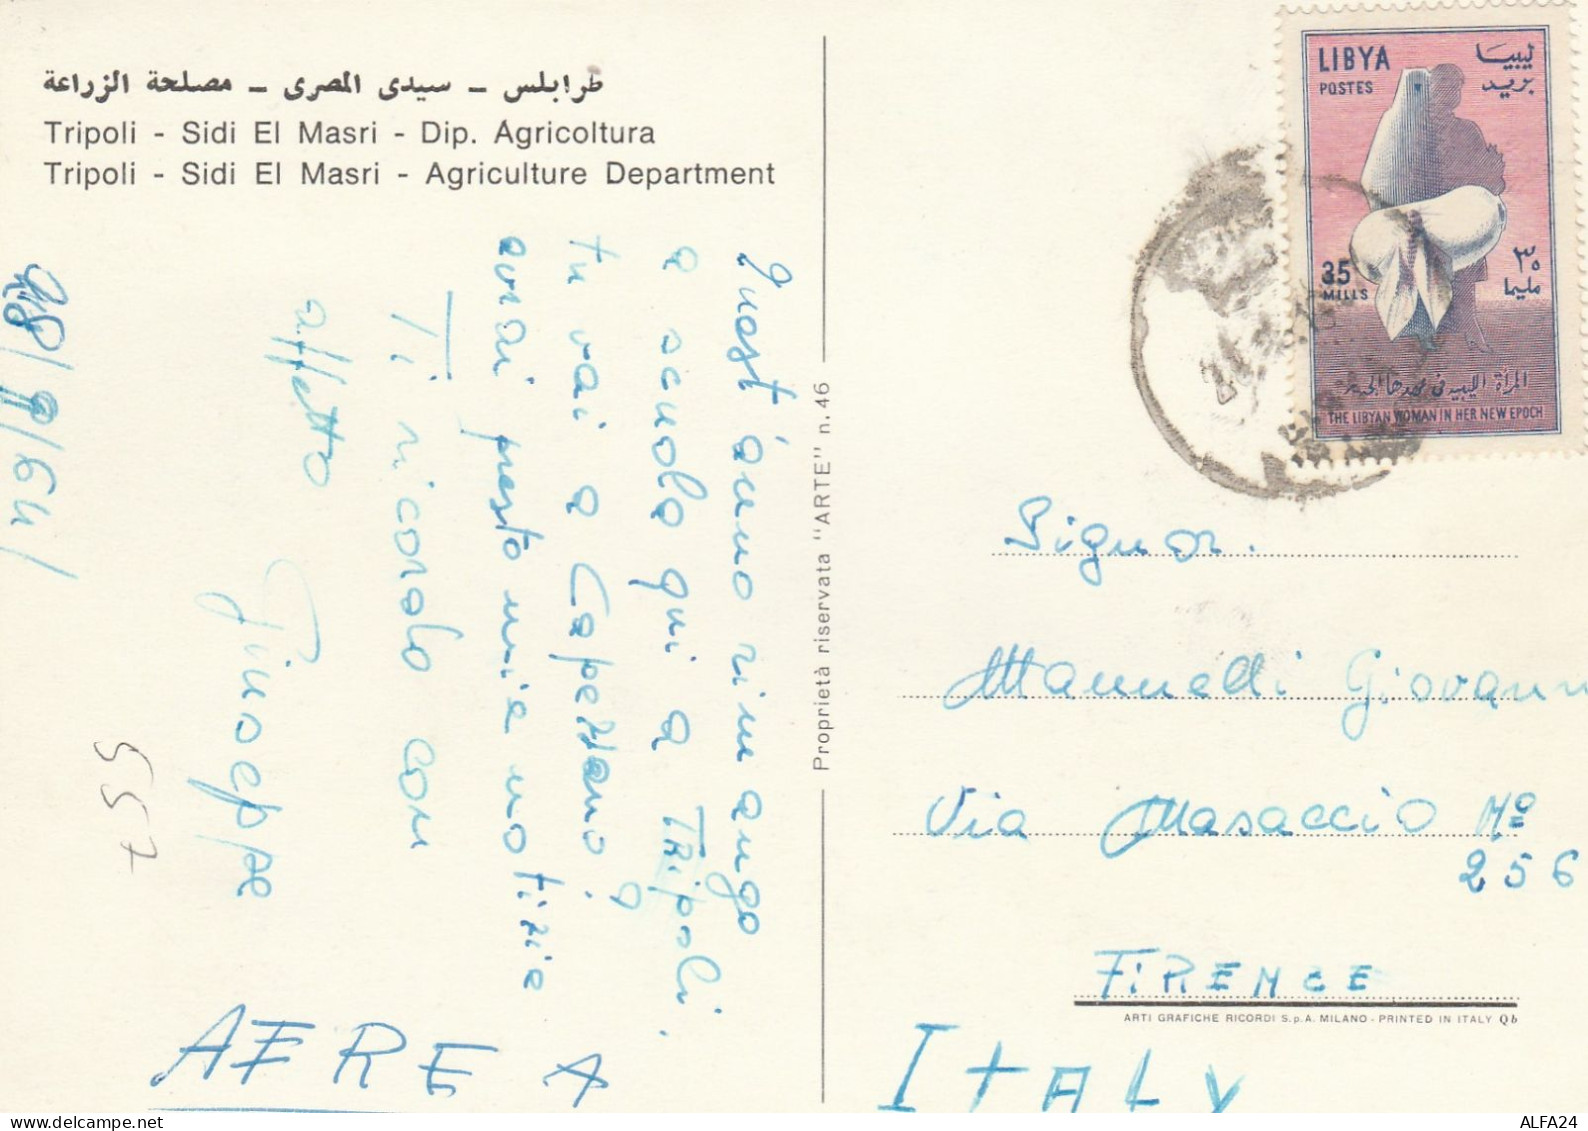 طرابلس - سيدى المصرى - مصلحة الزراعة
Tripoli - Sidi El Masri - Dip. Agricoltura
Tripoli - Sidi El Masri - Agriculture Department
28/9/64
Quest'anno rimango
a scuola qui a Tripoli,
tu vai a Capezzano?
avrai presto mie notizie
Ti ricordo con
affetto
Giuseppe
557
AEREA
Proprietà riservata "ARTE" n. 46
LIBYA
POSTES
ليبيا
بريد
35
MILLS
٣٥
مليما
المرأة الليبية فى عهدها الجديد
THE LIBYAN WOMAN IN HER NEW EPOCH
Signor.
Mannelli Giovann
Via Masaccio Nº
256
FiRENCE
ARTI GRAFICHE RICORDI S.p.A. MILANO - PRINTED IN ITALY Qb
ITALY
ALFA24